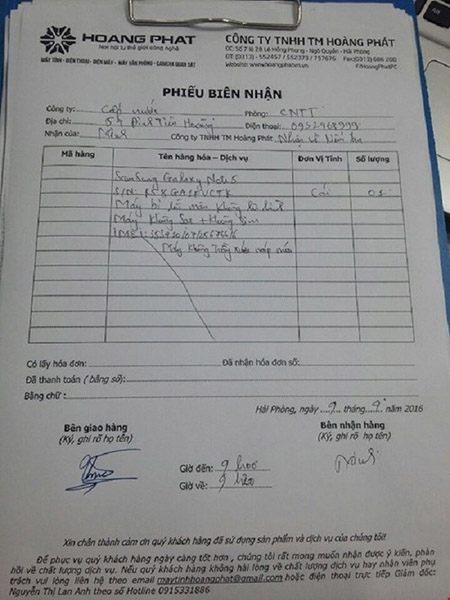 HOANG PHAT
Nơi hội tụ thế giới công nghệ
MÁY TÍNH - ĐIỆN THOẠI - ĐIỆN MÁY - MÁY VĂN PHÒNG - CAMERA QUAN SÁT
CÔNG TY TNHH TM HOÀNG PHÁT
ĐC: Số 7 lô 28 Lê Hồng Phong - Ngô Quyền - Hải Phòng
ĐT (0313) - 552457 / 552373 / 757676 Fax(0313) 686 200
Website: www.hoangphatvn.vn F/HoangPhatPC
PHIẾU BIÊN NHẬN
Công ty: Cấp nước Phòng: CNTT
Địa chỉ: 54 Đinh Tiên Hoàng Điện thoại: 0952968999
Nhận của: Công ty TNHH TM Hoàng Phát
Mã hàng Tên hàng hóa - Dịch vụ Đơn Vị Tính Số lượng
SamSung Galaxy Note 5
S/N: Cái 01
Máy bị lỗi màn không
Máy không Sạc + không Sim
IMEI:
Máy không trầy xước móp méo
Có lấy hóa đơn: Đã nhận hóa đơn số:
Đã thanh toán ( bằng số):
Bằng chữ :
Hải Phòng, ngày 9 tháng 9 năm 2016
Bên giao hàng
(Ký, ghi rõ họ tên)
Bên nhận hàng
(Ký, ghi rõ họ tên)
Giờ đến: 9h00
Giờ về: 9h20
Xin chân thành cảm ơn quý khách hàng đã sử dụng sản phẩm và dịch vụ của chúng tôi!
Để phục vụ quý khách hàng ngày càng tốt hơn , chúng tôi rất mong muốn nhận được ý kiến, phản
hồi về chất lượng dịch vụ. Nếu quý khách hàng không hài lòng về chất lượng dịch vụ hay nhân viên phụ
trách vui lòng liên hệ theo email maytinhhoangphat@gmail.com hoặc điện thoại trực tiếp Giám đốc:
Nguyễn Thị Lan Anh theo số Hotline 0915331886